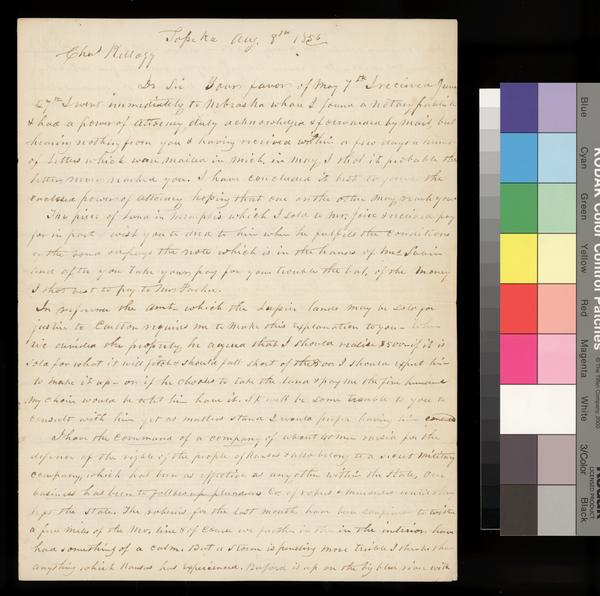 Topeka Aug. 8th 1856
Chas Kellogg
Dr Sir Your favor of May 7th I received June
27th I went immediately to Nebraska whare I found a notary public
& had a power of Attorney duly acknowledged & forwarded by mail, but
hearing nothing from you & having received within a few days a number
of letters which ware mailed in Mich in May. I shd it probable the
letter never reached you. I have concluded it best to the
enclosed power of attorney hoping that one or the other may reach you
The piece of land in Memphis which I sold to Mr. Joice & received pay
for in part wish you to deed to him when he fulfills the conditions
on the bond the note which is in the hands of
and after you take your pay for your trouble the bal. of the money
I shd wish to pay to Mrs
In reference the amt. which the lands may be sold for
justice to Carlton requires me to make this explanation to you
we divided the property, he agreed that I should realise $500 if it is
sold for what it will fetch & should fall short of the $500 I should expect him
to make it up - or if he chooses to take the land & pay me the five hundred
My choice would be to let him have it. It will be some trouble to you to
consult with him yet as matters stand I would prefer having him
I have the command of a company of about 40 men raised for the
defence of the rights of the people of Kansas & also belong to a secret military
company, which has been as effective as any other within the State, our
business has been to follow up plunders Co. of robers & murderers until they
left the State. The robberies for the last month have been confined to within
a few miles of the Mo. line & of course we farther in the interior have
had something of a calm. But a storm is pending more terrible I think than
anything which Kansas has experienced. Buford is up on the big blue river with
KODAK Color Control Patches
© The Tiffen Company, 2000
Blue
Cyan
Green
Yellow
Red
Magenta
White
3/Color
Black
Kodak
LICENSED PRODUCT